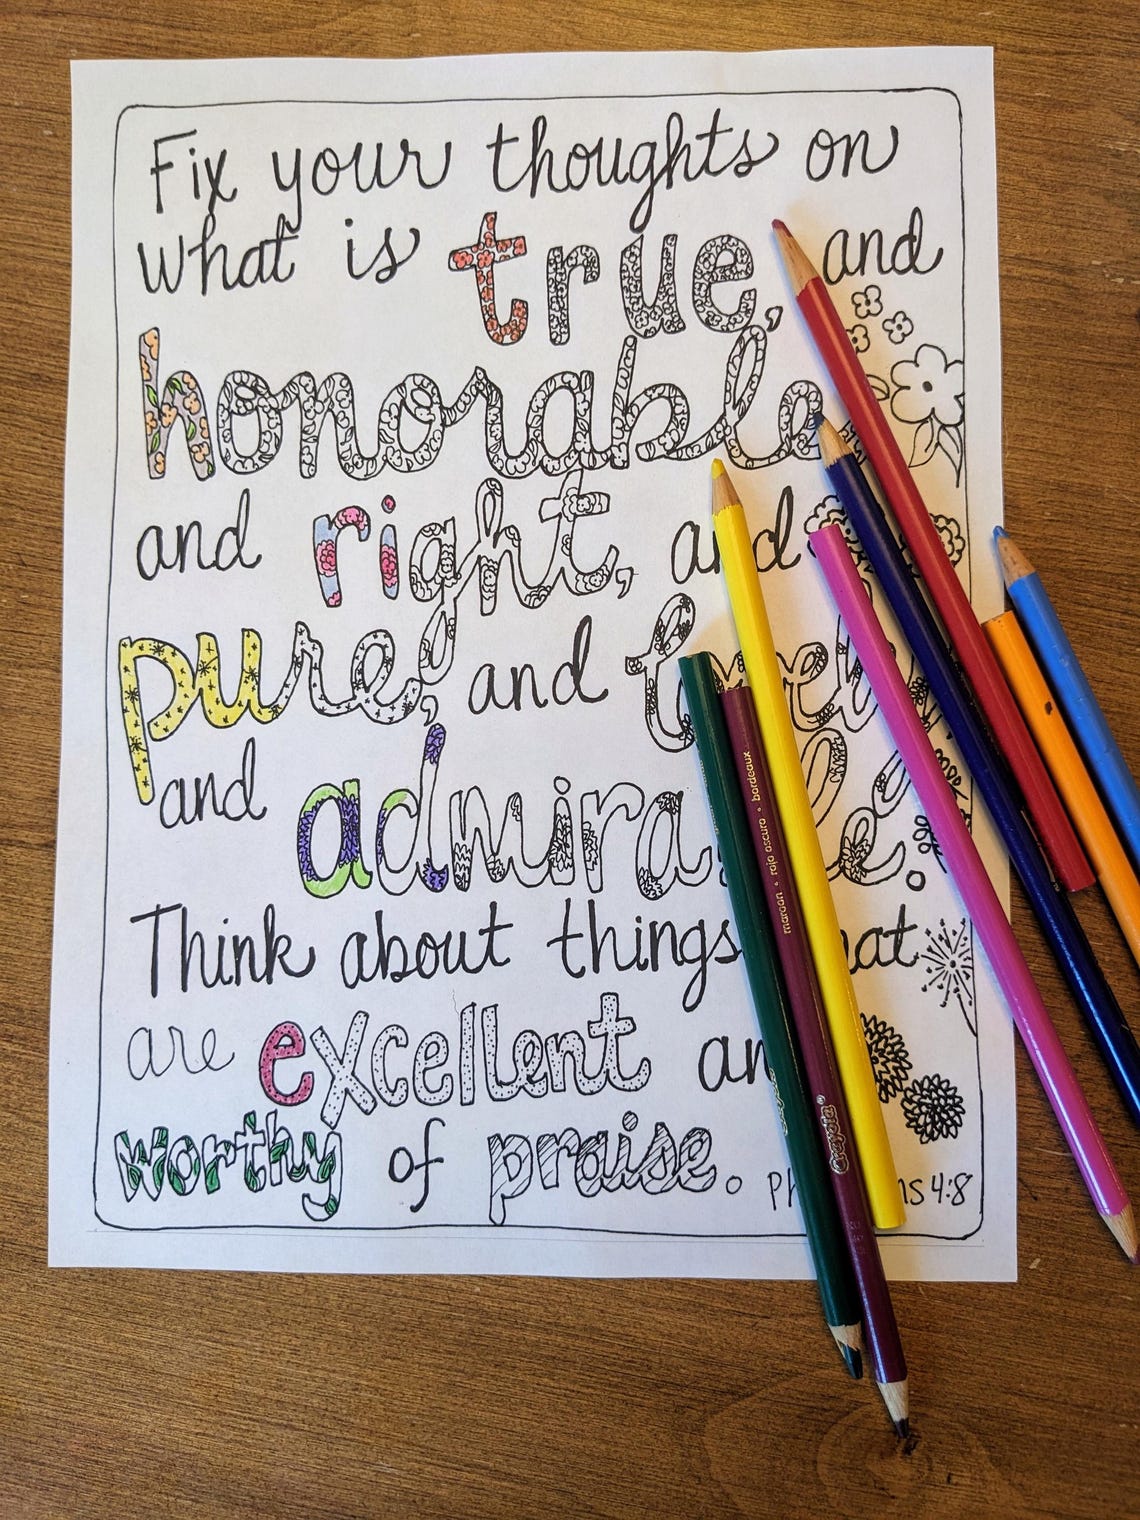 Fix your thoughts on
what is true, and
honorable
and right, and
pure, and lovely,
and admirable.
Think about things that
are excellent an
worthy of praise.
4:8
maroon • rojo oscuro • bordeaux
Crayola